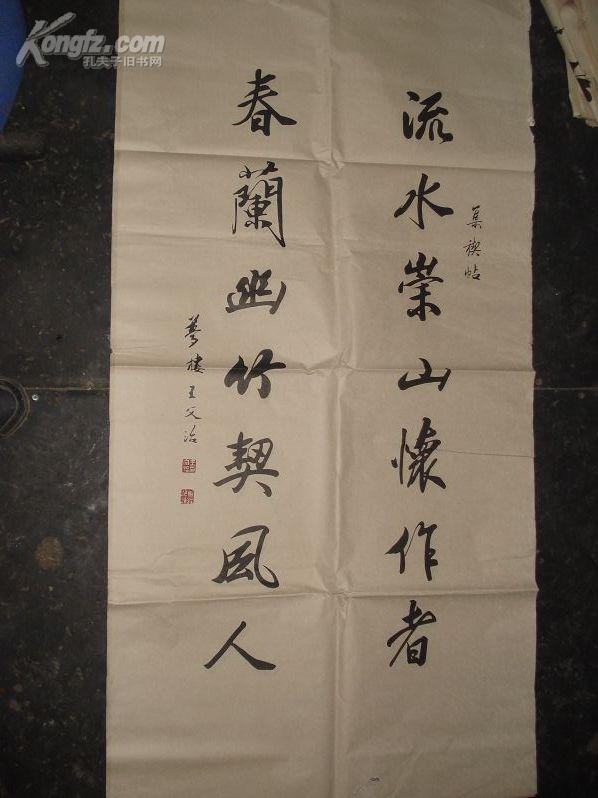 Kongfz.com
孔夫子旧书网
流水崇山懷作者
集禊帖
春蘭幽竹契風人
夢樓王文治